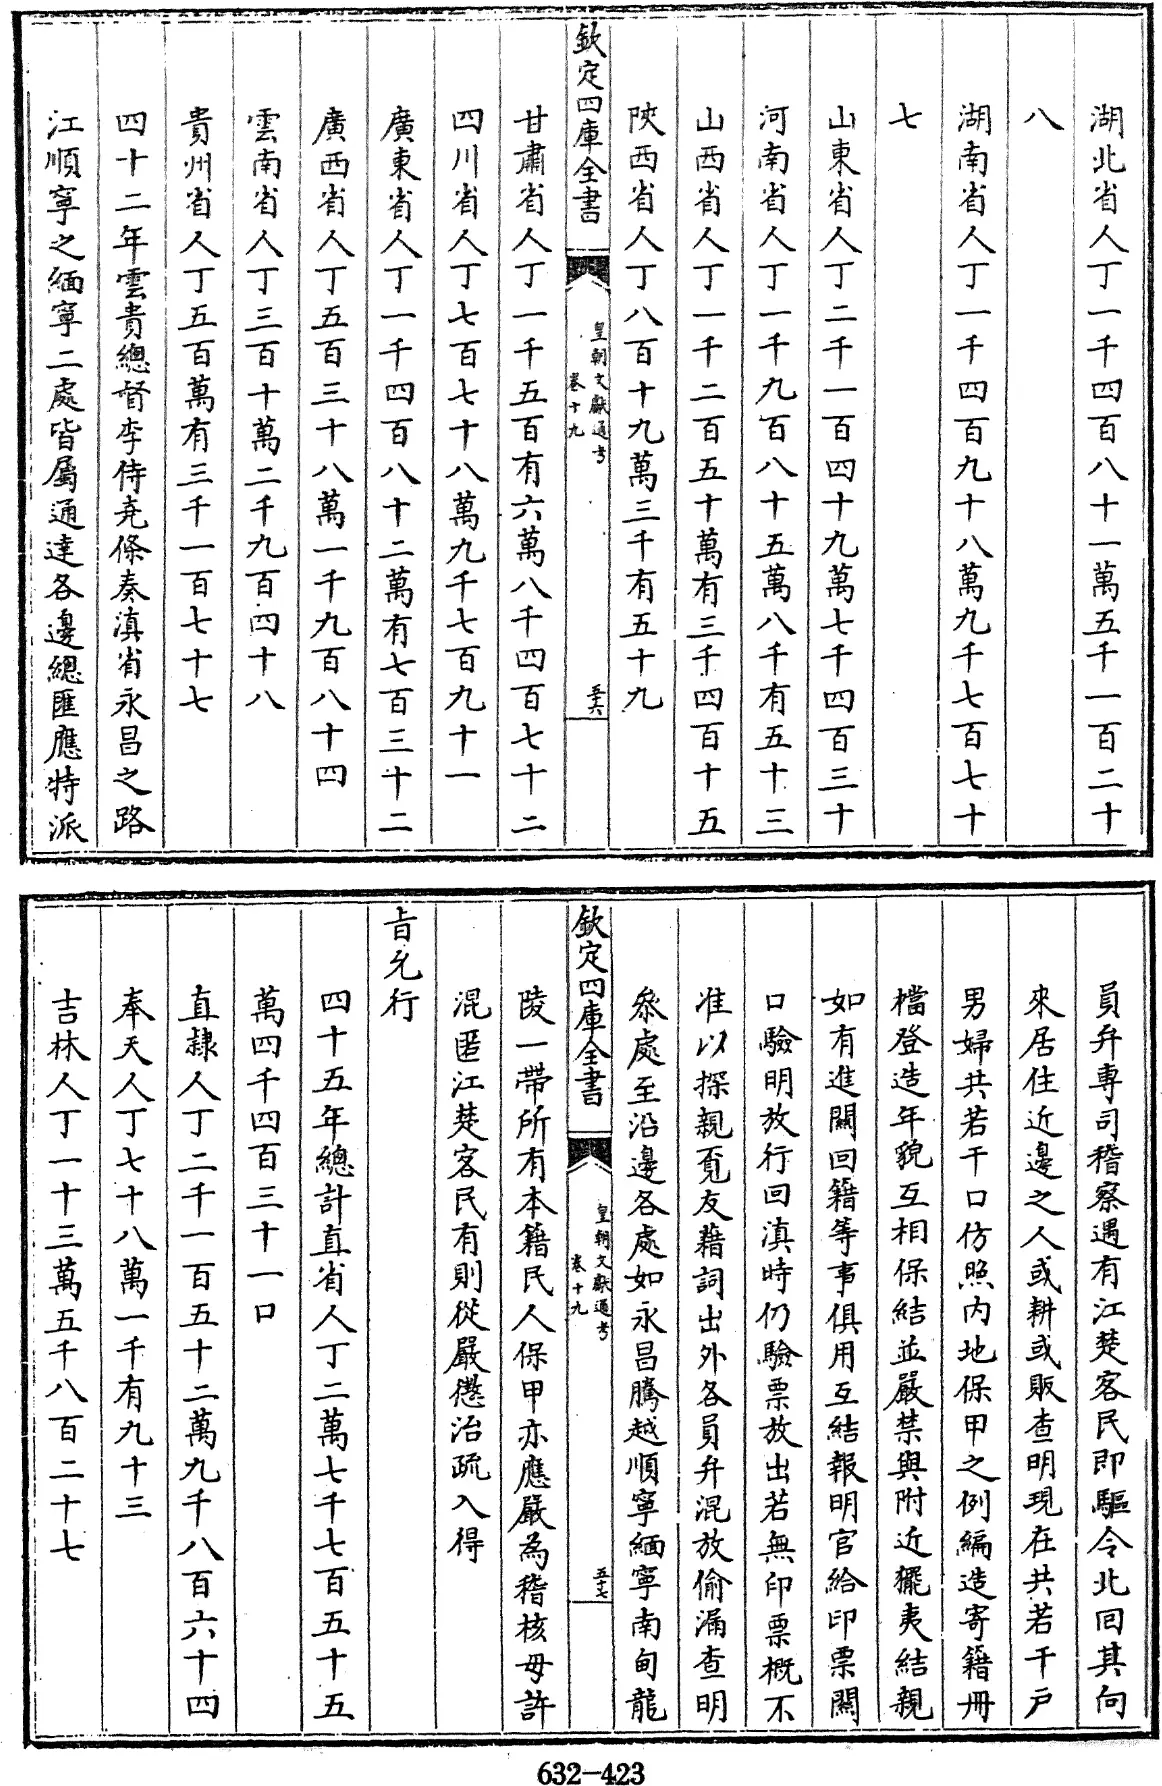 湖北省人丁一千四百八十一萬五千一百二十
八
湖南省人丁一千四百九十八萬九千七百七十
七
山東省人丁二千一百四十九萬七千四百三十
河南省人丁一千九百八十五萬八千有五十三
山西省人丁一千二百五十萬有三千四百十五
陜西省人丁八百十九萬三千有五十九
欽定四庫全書
皇朝文獻通考
卷十九
五十六
甘肅省人丁一千五百有六萬八千四百七十二
四川省人丁七百七十八萬九千七百九十一
廣東省人丁一千四百八十二萬有七百三十二
廣西省人丁五百三十八萬一千九百八十四
雲南省人丁三百十萬二千九百四十八
貴州省人丁五百萬有三千一百七十七
四十二年雲貴總督李侍堯條奏滇省永昌之路
江順寧之緬寧二處皆屬通達各邊總匯應特派
員弁專司稽察遇有江楚客民即驅令北回其向
來居住近邊之人或耕或販查明現在共若干戶
男婦共若干口仿照內地保甲之例編造寄籍冊
檔登造年貌互相保結並嚴禁與附近擺夷結親
如有進關回籍等事俱用互結報明官給印票關
口驗明放行回滇時仍驗票放出若無印票概不
准以探親覓友藉詞出外各員弁混放偷漏查明
叅處至沿邊各處如永昌騰越順寧緬寧南甸龍
欽定四庫全書
皇朝文獻通考
卷十九
五十七
陵一帶所有本籍民人保甲亦應嚴為稽核毋許
混匿江楚客民有則從嚴懲治疏入得
旨允行
四十五年總計直省人丁二萬七千七百五十五
萬四千四百三十一口
直隸人丁二千一百五十二萬九千八百六十四
奉天人丁七十八萬一千有九十三
吉林人丁一十三萬五千八百二十七
632-423